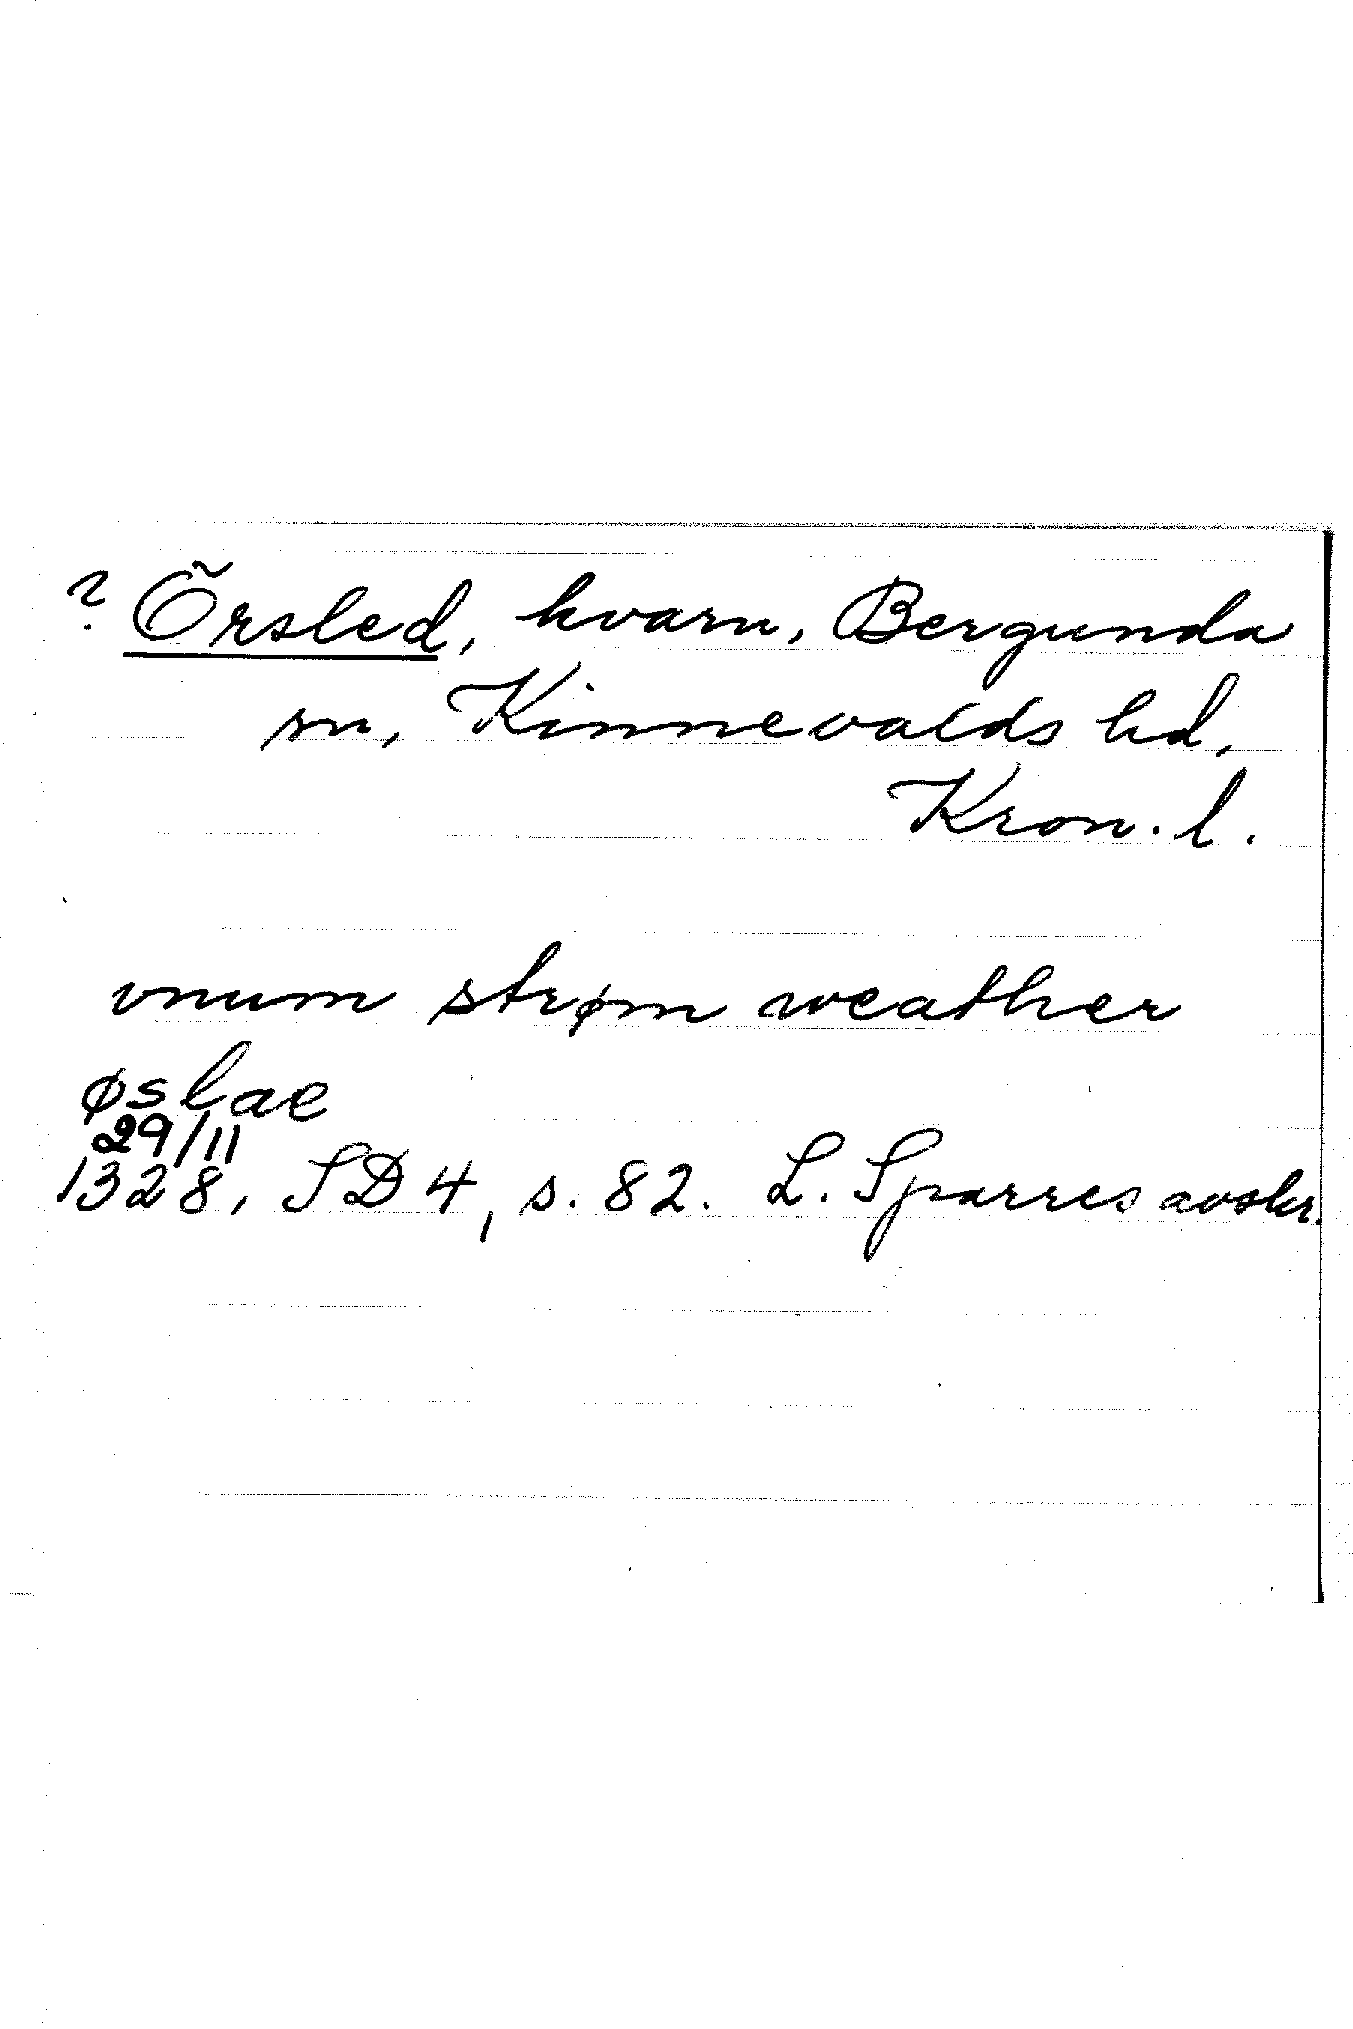 ? Örsled, kvarn, Bergunda
sn, Kinnevalds hd,
Kron. l.
vnum strøm weather
øslae
29/11
1328, SD 4, s. 82. L. Sparres avskr.